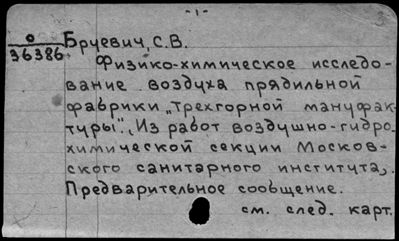 -1-
о
36386
Бруевич, С.В.
Физико-химическое исследо-
вание воздуха прядильной
фабрики „Трехгорной мануфак-
туры". „Из работ воздушно-гидро-
химической секции Москов-
ского санитарного института„.
Предварительное сообщение.
см. след. карт.